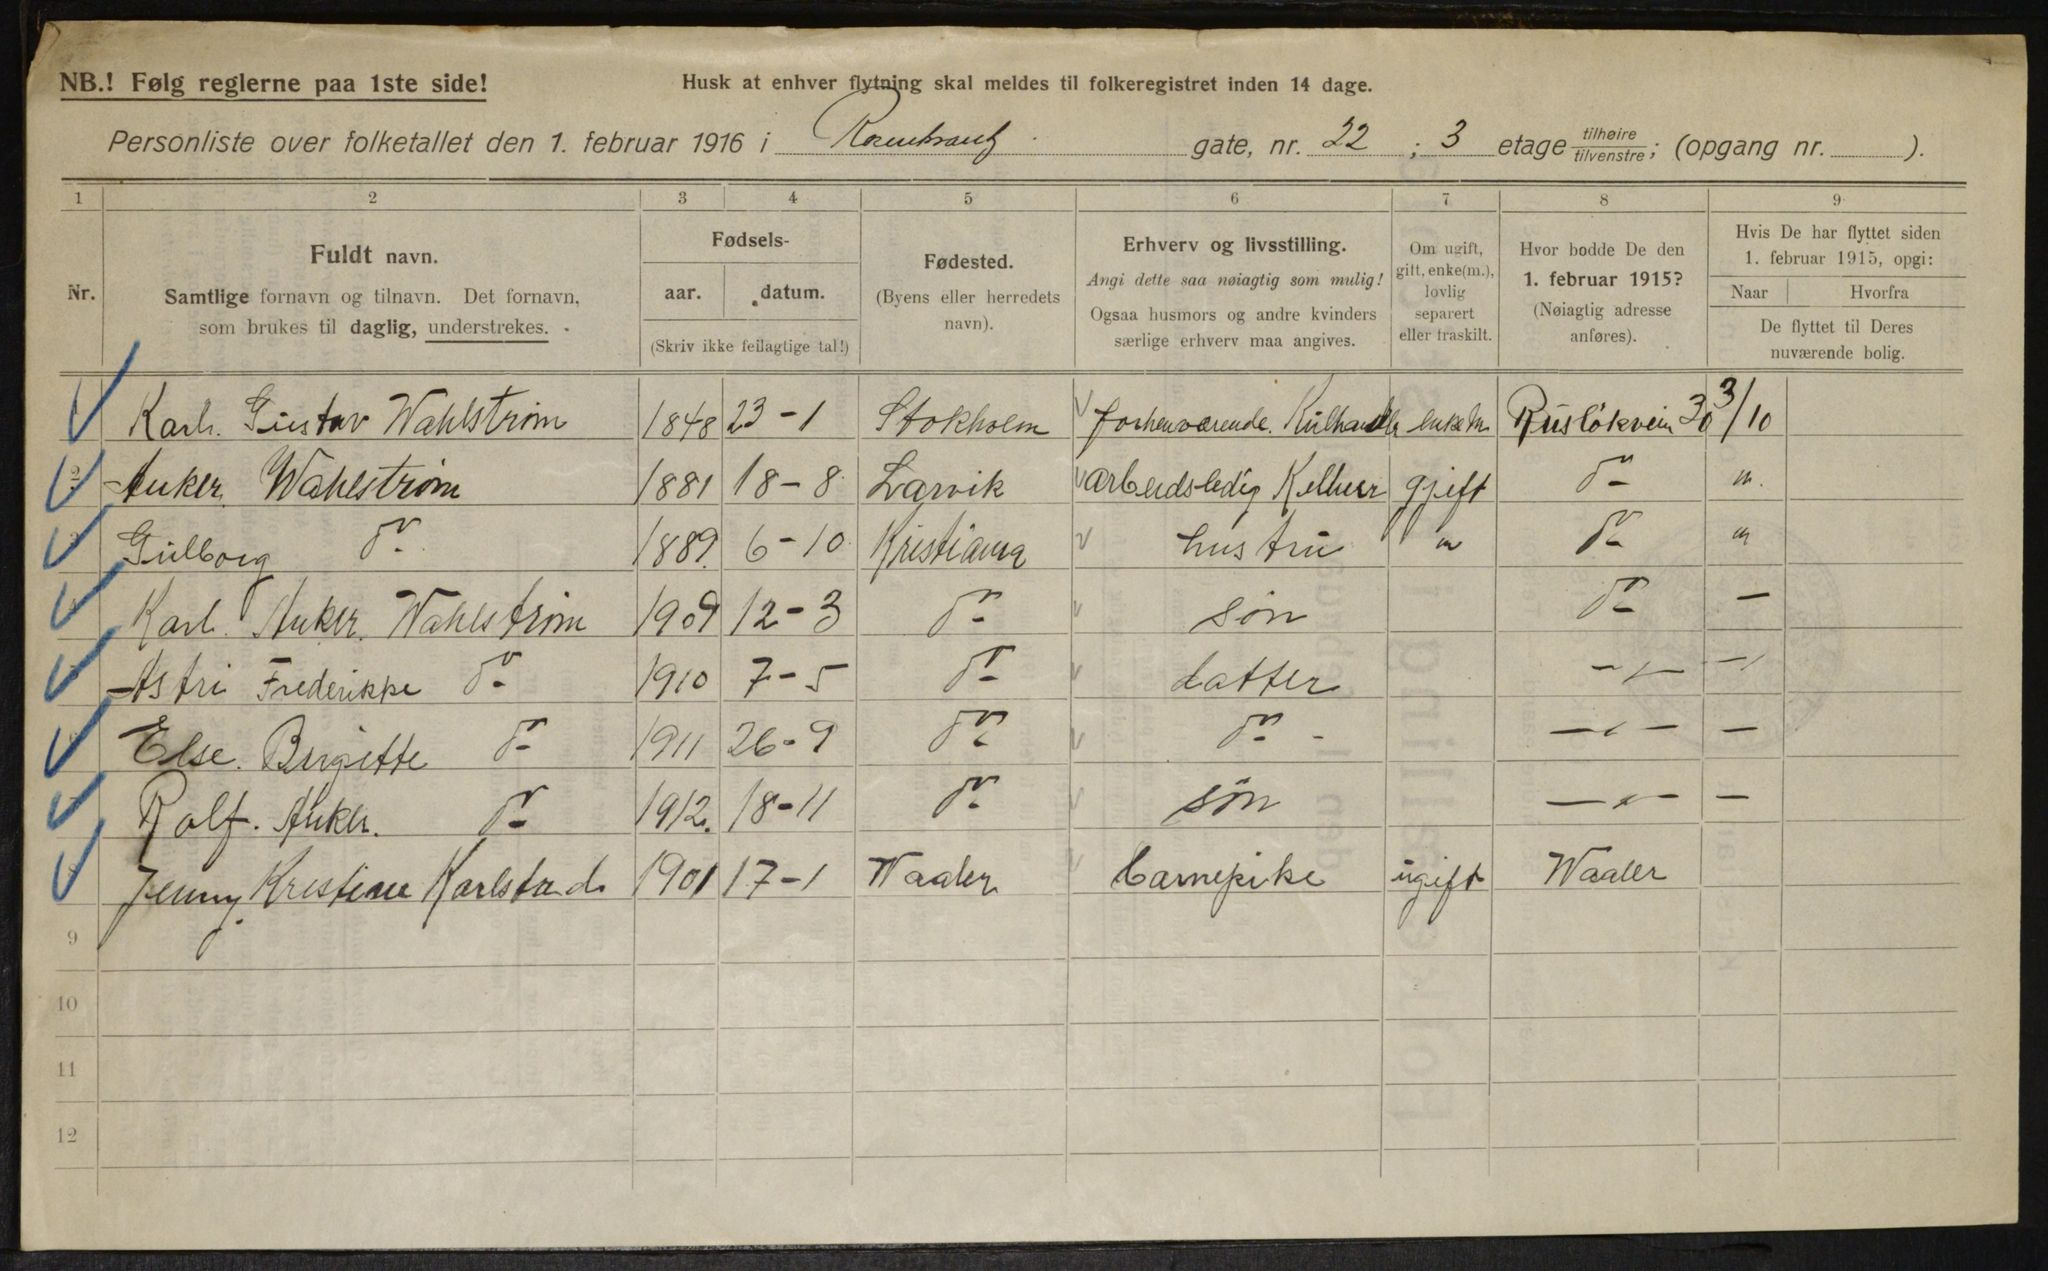 NB.! Følg reglerne paa 1ste side!
Husk at enhver flytning skal meldes til folkeregistret inden 14 dage.
Personliste over folketallet den 1. februar 1916 i Rosenkrantz gate, nr. 22 ; 3 etage tilhøire/tilvenstre; (opgang nr. ).
1 2 3 4 5 6 7 8 9
Nr.
Fuldt navn.
Samtlige fornavn og tilnavn. Det fornavn,
som brukes til daglig, understrekes.
Fødsels-
aar. datum.
(Skriv ikke feilagtige tal!)
Fødested.
(Byens eller herredets
navn).
Erhverv og livsstilling.
Angi dette saa nøiagtig som mulig!
Ogsaa husmors og andre kvinders
særlige erhverv maa angives.
Om ugift,
gift, enke(m.),
lovlig
separert
eller fraskilt.
Hvor bodde De den
1. februar 1915?
(Nøiagtig adresse
anføres).
Hvis De har flyttet siden
1. februar 1915, opgi:
Naar Hvorfra
De flyttet til Deres
nuværende bolig.
Karl. Gustav Wahlstrøm 1848 23-1 Stokholm forhenværende. Kulhandler enkem Rusløkvein 30 3/10
2 Anker. Wahlstrøm 1881 18-8 Larvik arbeidsledig Kellner gjift do "
Gulborg do 1889. 6-10 Kristiania hustru " do "
Karl. Anker. Wahlstrøm 1909 12-3 do søn do -
Astri Frederikke do 1910 7-5 do datter -"- -"
Else. Birgitte do 1911 26-9 do do -"- -
Rolf. Anker. do 1912. 18-11 do søn -"- -
Jenny Kristine Karlstad. 1901 17-1 Waaler barnepike ugift Waaler
9
10
11
12